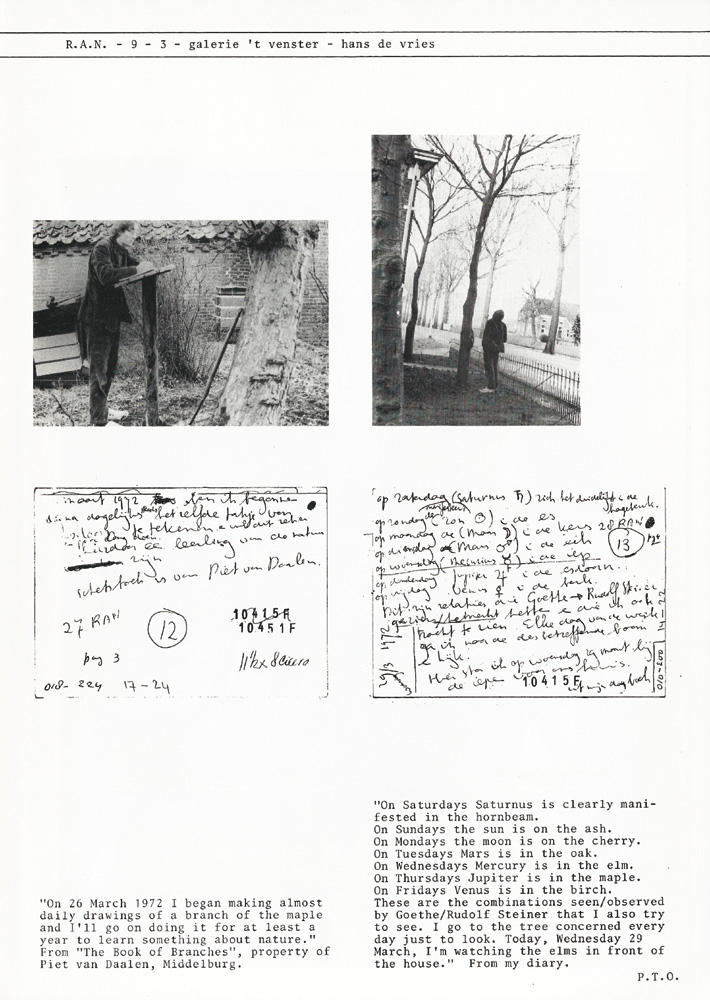 R.A.N. - 9 - 3 - galerie 't venster - hans de vries
maart 1972 ben ik begonnen
dagelijks hetzelfde takje van
te tekenen
leerling van de natuur
zijn
schetsboek is van Piet van Daalen.
27 RAN
12
10415F
10451F
pag 3
018- 224 17-24
op zaterdag (Saturnus ♄) zich het duidelijkst in de
haagbeuk.
op zondag (zon ☉) in de es
op maandag de (maan ☽) in de kers 28 RAN
op dinsdag (Mars ♂) in de eik
13
op woensdag (Mercurius ☿) in de iep
op donderdag Jupiter ♃ in de esdoorn
op vrijdag Venus ♀ in de berk.
Dit zijn relaties die Goethe → Rudolf Steiner
gezien/betracht hebben en die ik ook
tracht te zien. Elke dag van de week
ga ik naar de desbetreffende boom
en kijk.
Hier sta ik op woensdag 29 maart bij
de iepen voor ons huis.
10415F
uit mijn dagboek
"On 26 March 1972 I began making almost
daily drawings of a branch of the maple
and I'll go on doing it for at least a
year to learn something about nature."
From "The Book of Branches", property of
Piet van Daalen, Middelburg.
"On Saturdays Saturnus is clearly mani-
fested in the hornbeam.
On Sundays the sun is on the ash.
On Mondays the moon is on the cherry.
On Tuesdays Mars is in the oak.
On Wednesdays Mercury is in the elm.
On Thursdays Jupiter is in the maple.
On Fridays Venus is in the birch.
These are the combinations seen/observed
by Goethe/Rudolf Steiner that I also try
to see. I go to the tree concerned every
day just to look. Today, Wednesday 29
March, I'm watching the elms in front of
the house." From my diary.
P.T.O.